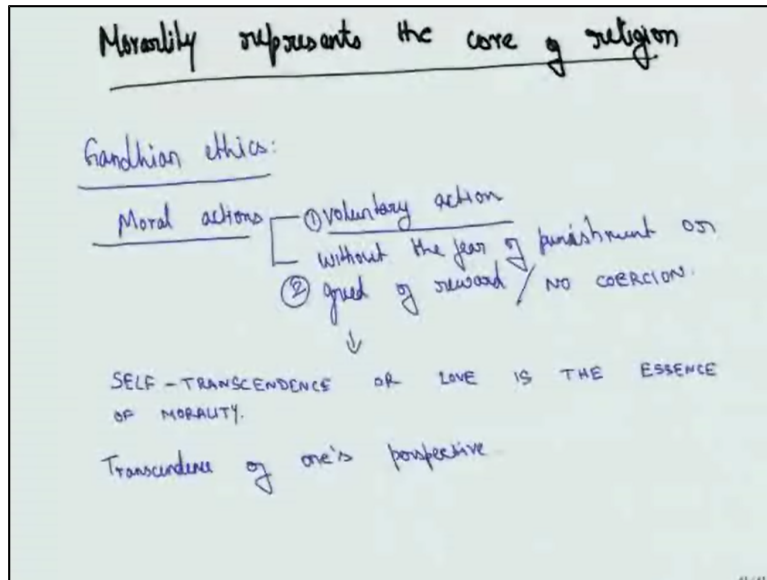 Morarlity represents the core of religion
Gandhian ethics:
Moral actions ① voluntary action
without the fear of punishment or
② greed of reward / NO COERCION.
↓
SELF-TRANSCENDENCE OR LOVE IS THE ESSENCE
OF MORALITY.
Transcendence of one's perspective